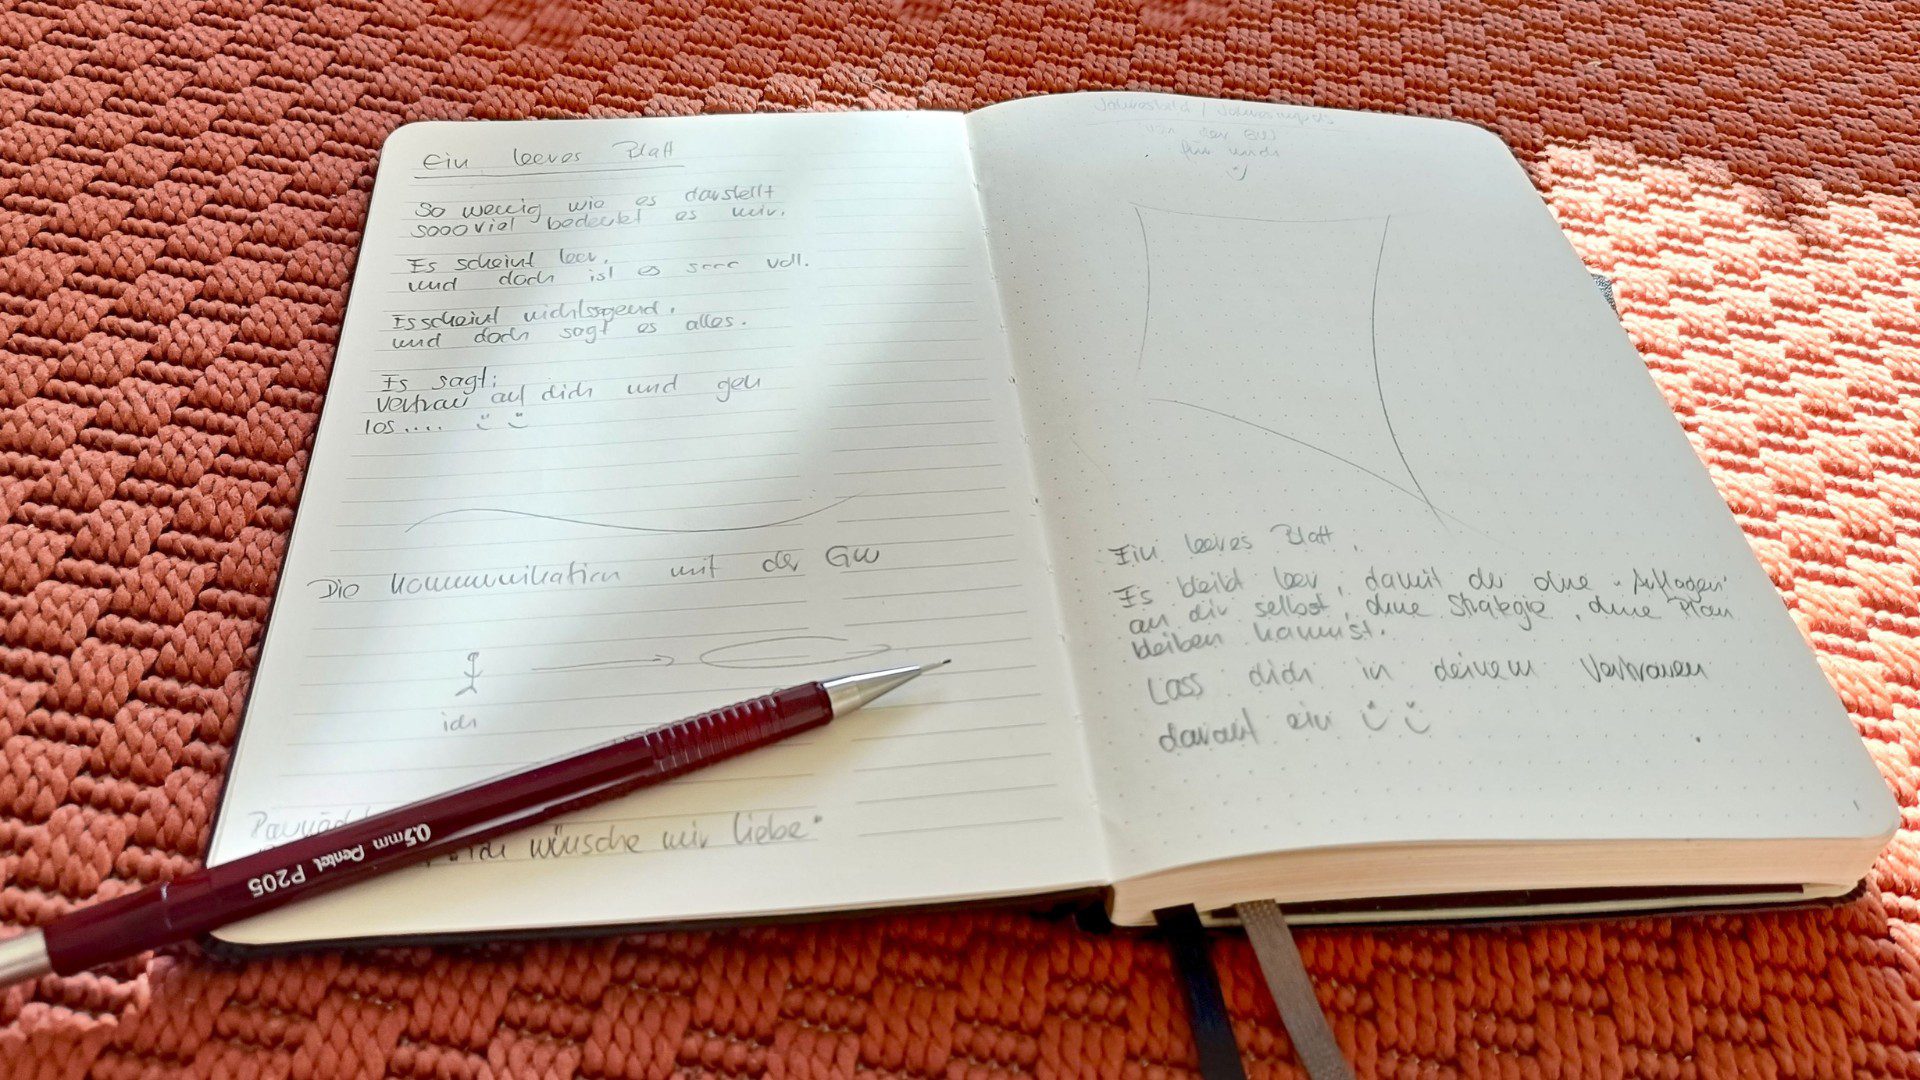 Ein leeres Blatt
So wenig wie es darstellt
sooo viel bedeutet es mir.
Es scheint leer,
und doch ist es sooo voll.
Es scheint nichtssagend,
und doch sagt es alles.
Es sagt:
Vertrau auf dich und geh
los....
Die Kommunikation mit der GW
ich
ich wünsche mir Liebe"
0,5mm Pentel P205
von der GW
für mich
Ein leeres Blatt.
Es bleibt leer, damit du ohne "Auflagen"
an dir selbst, ohne Strategie, ohne Plan
bleiben kannst.
Lass dich in deinem Vertrauen
darauf ein